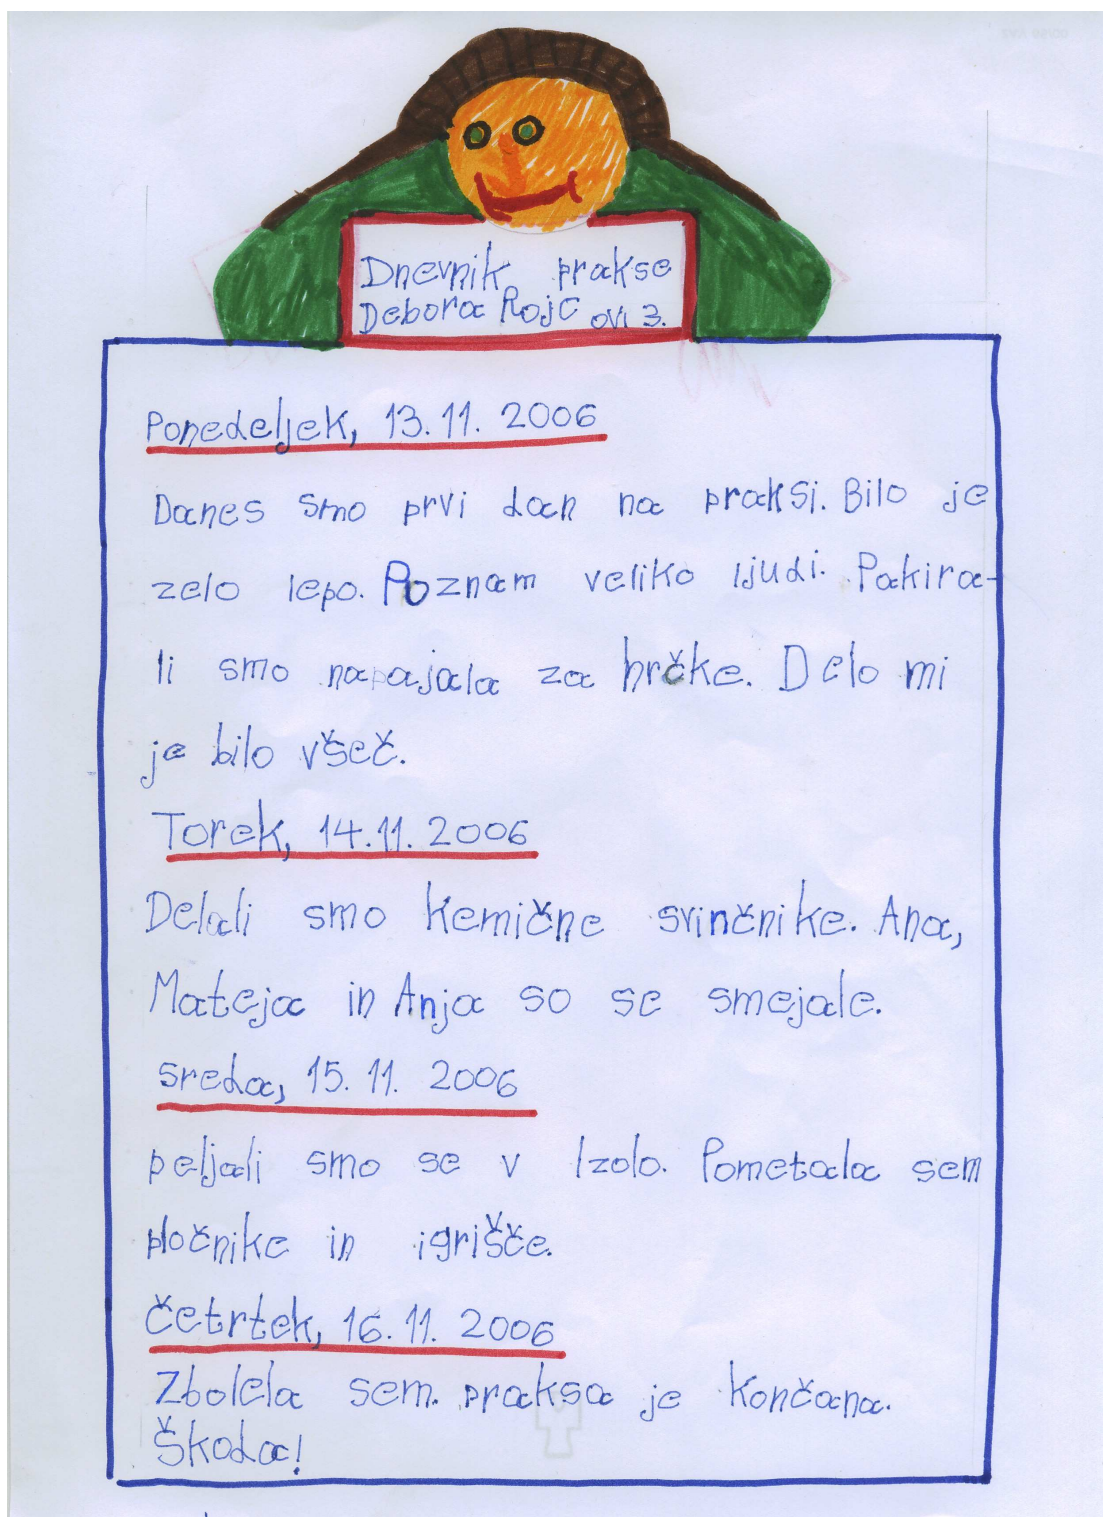 Dnevnik prakse
Debora Rojc OVI 3.
Ponedeljek, 13.11. 2006
Danes smo prvi dan na praksi. Bilo je
zelo lepo. Poznam veliko ljudi. Pakira-
li smo napajala za hrčke. Delo mi
je bilo všeč.
Torek, 14.11. 2006
Delali smo kemične svinčnike. Ana,
Mateja in Anja so se smejale.
sreda, 15. 11. 2006
peljali smo se v Izolo. Pometala sem
pločnike in igrišče.
Četrtek, 16. 11. 2006
Zbolela sem. praksa je končana.
Škoda!